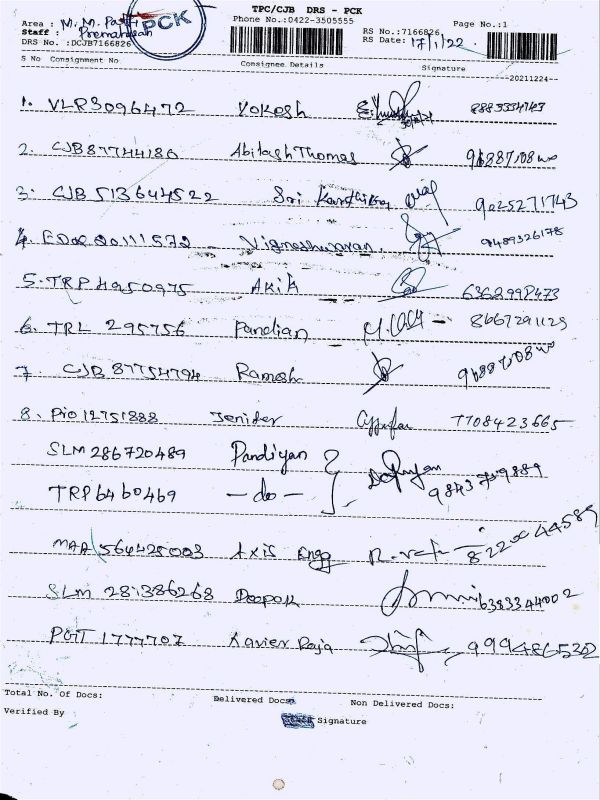 TPC/CJB DRS - PCK
Phone No.:0422-3505555
Page No.:1
Area : M.M.
PCK
Staff : Premanesan
DRS No. :DCJB7166826
RS No.:7166826
RS Date: 17/1/22
S No Consignment No Consignee Details Signature
20211224
1. VLR3096472 Yokesh 8883334743
2. CJB87744186 Abilash Thomas
3. CJB 513644522 Sri 9025271743
4. 20111572 Vigneshwaran. 9489326178
5. TRP4950975 Akik
6. TRL 295756 Pandian 8667291129
7. CJB 87754794 Ramesh
8. PIO12751888 Jenifer 7708423665
SLM 286720489 Pandiyan
TRP6460469 - do -
MAA 564425003 Axis Engg 8220044589
SLM 281386268 Deepak 6383344002
PGT 1777707 Xavier Raja 9994865302
Total No. Of Docs: Delivered Docs: Non Delivered Docs:
Verified By Signature